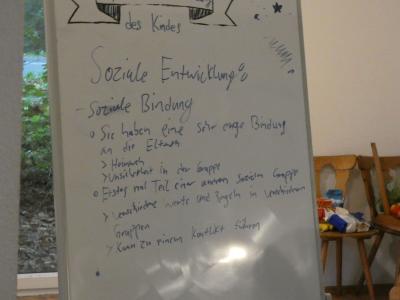 des Kindes
Soziale Entwicklung:
- Soziale Bindung
o Sie haben eine sehr enge Bindung
an die Eltern
> Heimweh
> Unsicherheit in der Gruppe
o Erstes mal Teil einer neuen sozialen Gruppe
> Verschiedene werte und Regeln in verschiedenen
Gruppen
> Kann zu einem Konflikt führen